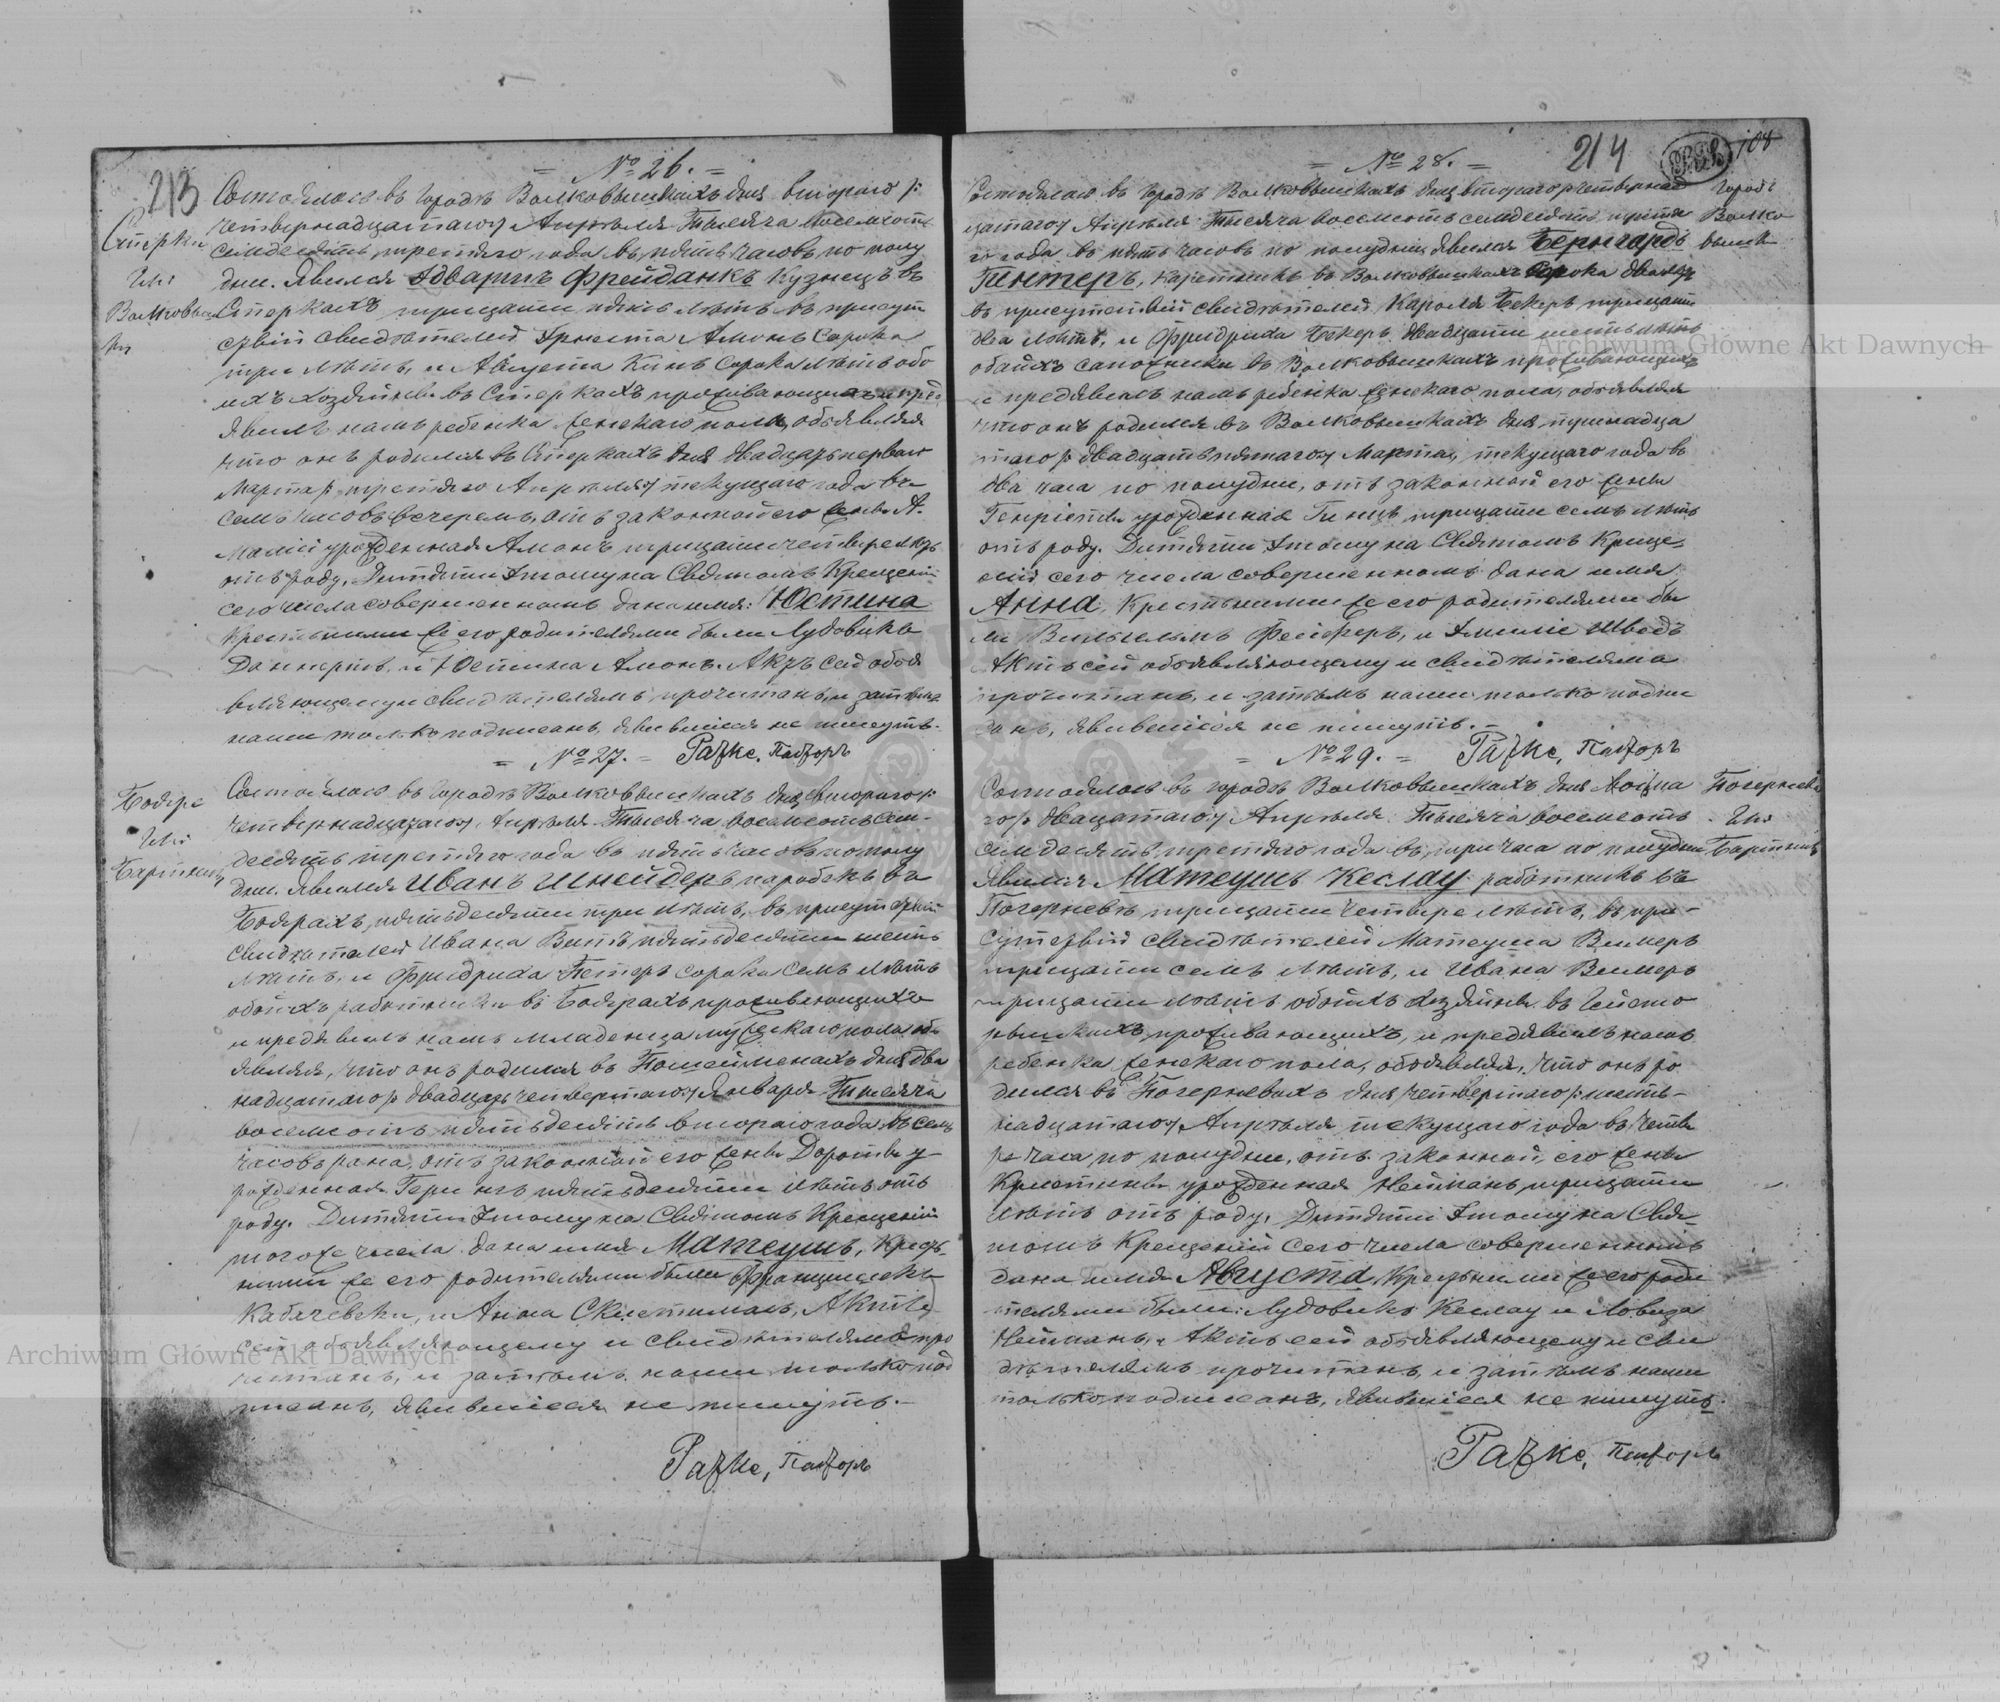 213
Сперки
Гмі
Волковыш
ки
= № 26. =
Состоялось въ городѣ Волковышкахъ дня втораго /:
четвернадцатаго:/ Апрѣля Тысяча восемьсотъ
семдесятъ третяго года въ пять часовъ по полу
дни. Явился Эдвартъ Фрейданкъ кузнецъ въ
Сперкахъ тридцати пяти лѣтъ въ присут
ствіи свидѣтелей Эрнеста Амонъ сорока
три лѣтъ, и Августа Кинъ сорока лѣтъ обо
ихъ хозяйновъ въ Сперкахъ проживающихъ и пред
явилъ намъ ребенка женскаго пола, объявляя
что онъ родился въ Сперкахъ дня двадцать перваго
Марта /: третяго Апрѣля:/ текущаго года въ
семь часовъ вечеромъ, отъ законной его жены А.
маліи урожденная Амонъ тридцати четыре лѣтъ
отъ роду. Дитяти этому на Святомъ Крещеніи
сего числа совершенномъ дано имя: Юстина
Крестными же его родителями были Лудовикъ
Даннертъ, и Юстина Амонъ. Актъ сей объя
вляющему и свидѣтелямъ прочитанъ, и затѣмъ
нами только подписанъ, явившіеся не пишутъ.
= № 27. = Ражке, Пасторъ
Бояре
Гмі
Бартник
Состоялось въ городѣ Волковышкахъ дня втораго /:
четвернадцатаго:/ Апрѣля Тысяча восемьсотъ сем-
десятъ третяго года въ пять часовъ по полу
дни. Явился Иванъ Шнейдеръ паробокъ въ
Боярахъ, пятьдесяти три лѣтъ, въ присутствіи
свидѣтелей Ивана Витъ, пятьдесяти шесть
лѣтъ, и Фридриха Петеръ сорока семь лѣтъ
обоихъ работники въ Боярахъ проживающихъ
и предявилъ намъ младенца мужескаго пола объ
являя, что онъ родился въ Пошейменахъ дня два
надцатаго /: двадцать четвертаго:/ Января Тысяча
восемьсотъ пятьдесятъ втораго года, въ семь
часовъ рана, отъ законной его жены Доротеи у-
рожденная Герингъ пятьдесяти лѣтъ отъ
роду. Дитяти этому на Святомъ Крещеніи
тогоже числа дана имя Матеушъ, Крест-
ными же его родителями были Францишекъ
Кабачевски, и Анна Скистимасъ, Актъ
сей объявляющему и свидѣтелямъ про
читанъ, и затѣмъ нами только под
писанъ, явившіеся не пишутъ.-
Ражке, Пасторъ
214
108
= № 28. =
Городъ
Волко
вышк
Состоялось въ городѣ Волковышкахъ дня втораго /: четвернад
цатаго:/ Апрѣля Тысяча восемьсотъ семдесятъ третя
го года въ пять часовъ по полудни, явился Бернгардъ
Гинтеръ, каретникъ въ Волковышкахъ сорока два лѣтъ
въ присутствіи свидѣтелей Кароля Бекеръ тридцати
два лѣтъ, и Фридриха Бекеръ двадцати шесть лѣтъ
обоихъ сапожники въ Волковышкахъ проживающихъ
и предявилъ намъ ребенка женскаго пола, объявляя
что онъ родился въ Волковышкахъ дня тринадца
таго /: двадцать пятаго:/ Марта, текущаго года въ
два часа по полудни, отъ законной его жены
Генріеты урожденная Гинцъ, тридцати семь лѣтъ
отъ роду. Дитяти этому на Святомъ Креще-
ніи сего числа совершенномъ дана имя
Анна, Крестными же его родителями бы
ли Вильгельмъ Фейферъ, и Эмиліе Шведъ
Актъ сей объявляющему и свидѣтелямъ
прочитанъ, и затѣмъ нами только подпи
санъ, явившіеся не пишутъ.-
= № 29. = Ражке, Пасторъ
Погернево
Гмі
Бартник
Состоялось въ городѣ Волковышкахъ дня восма
го /: двацатаго:/ Апрѣля Тысяча восемьсотъ
семдесятъ третяго года въ три часа по полудни
Явился Матеушъ Кеслау работникъ въ
Погерневѣ тридцати четыре лѣтъ, въ при-
сутствіи свидѣтелей Матеуша Вимеръ
тридцати семь лѣтъ, и Ивана Вимеръ
тридцати лѣтъ обоихъ хозяйновъ въ
проживающихъ, и предявилъ намъ
ребенка женскаго пола, объявляя, что онъ ро
дился въ Погерневахъ дня четвертаго /: шест-
надцатаго:/ Апрѣля текущаго года въ четы
ре часа по полудни, отъ законной его жены
Кристины урожденная Нейманъ, тридцати
лѣтъ отъ роду. Дитяти этому на Свя-
томъ Крещеніи сего числа совершенномъ
дана имя Августа, Крестными же его роди
телями были: Лудовикъ Кеслау и Ловиза
Нейманъ, Актъ сей объявляющему и сви
дѣтелямъ прочитанъ, и затѣмъ нами
только подписанъ, явившіеся не пишутъ.
Ражке, Пасторъ
Archiwum Główne Akt Dawnych
Archiwum Główne Akt Dawnych